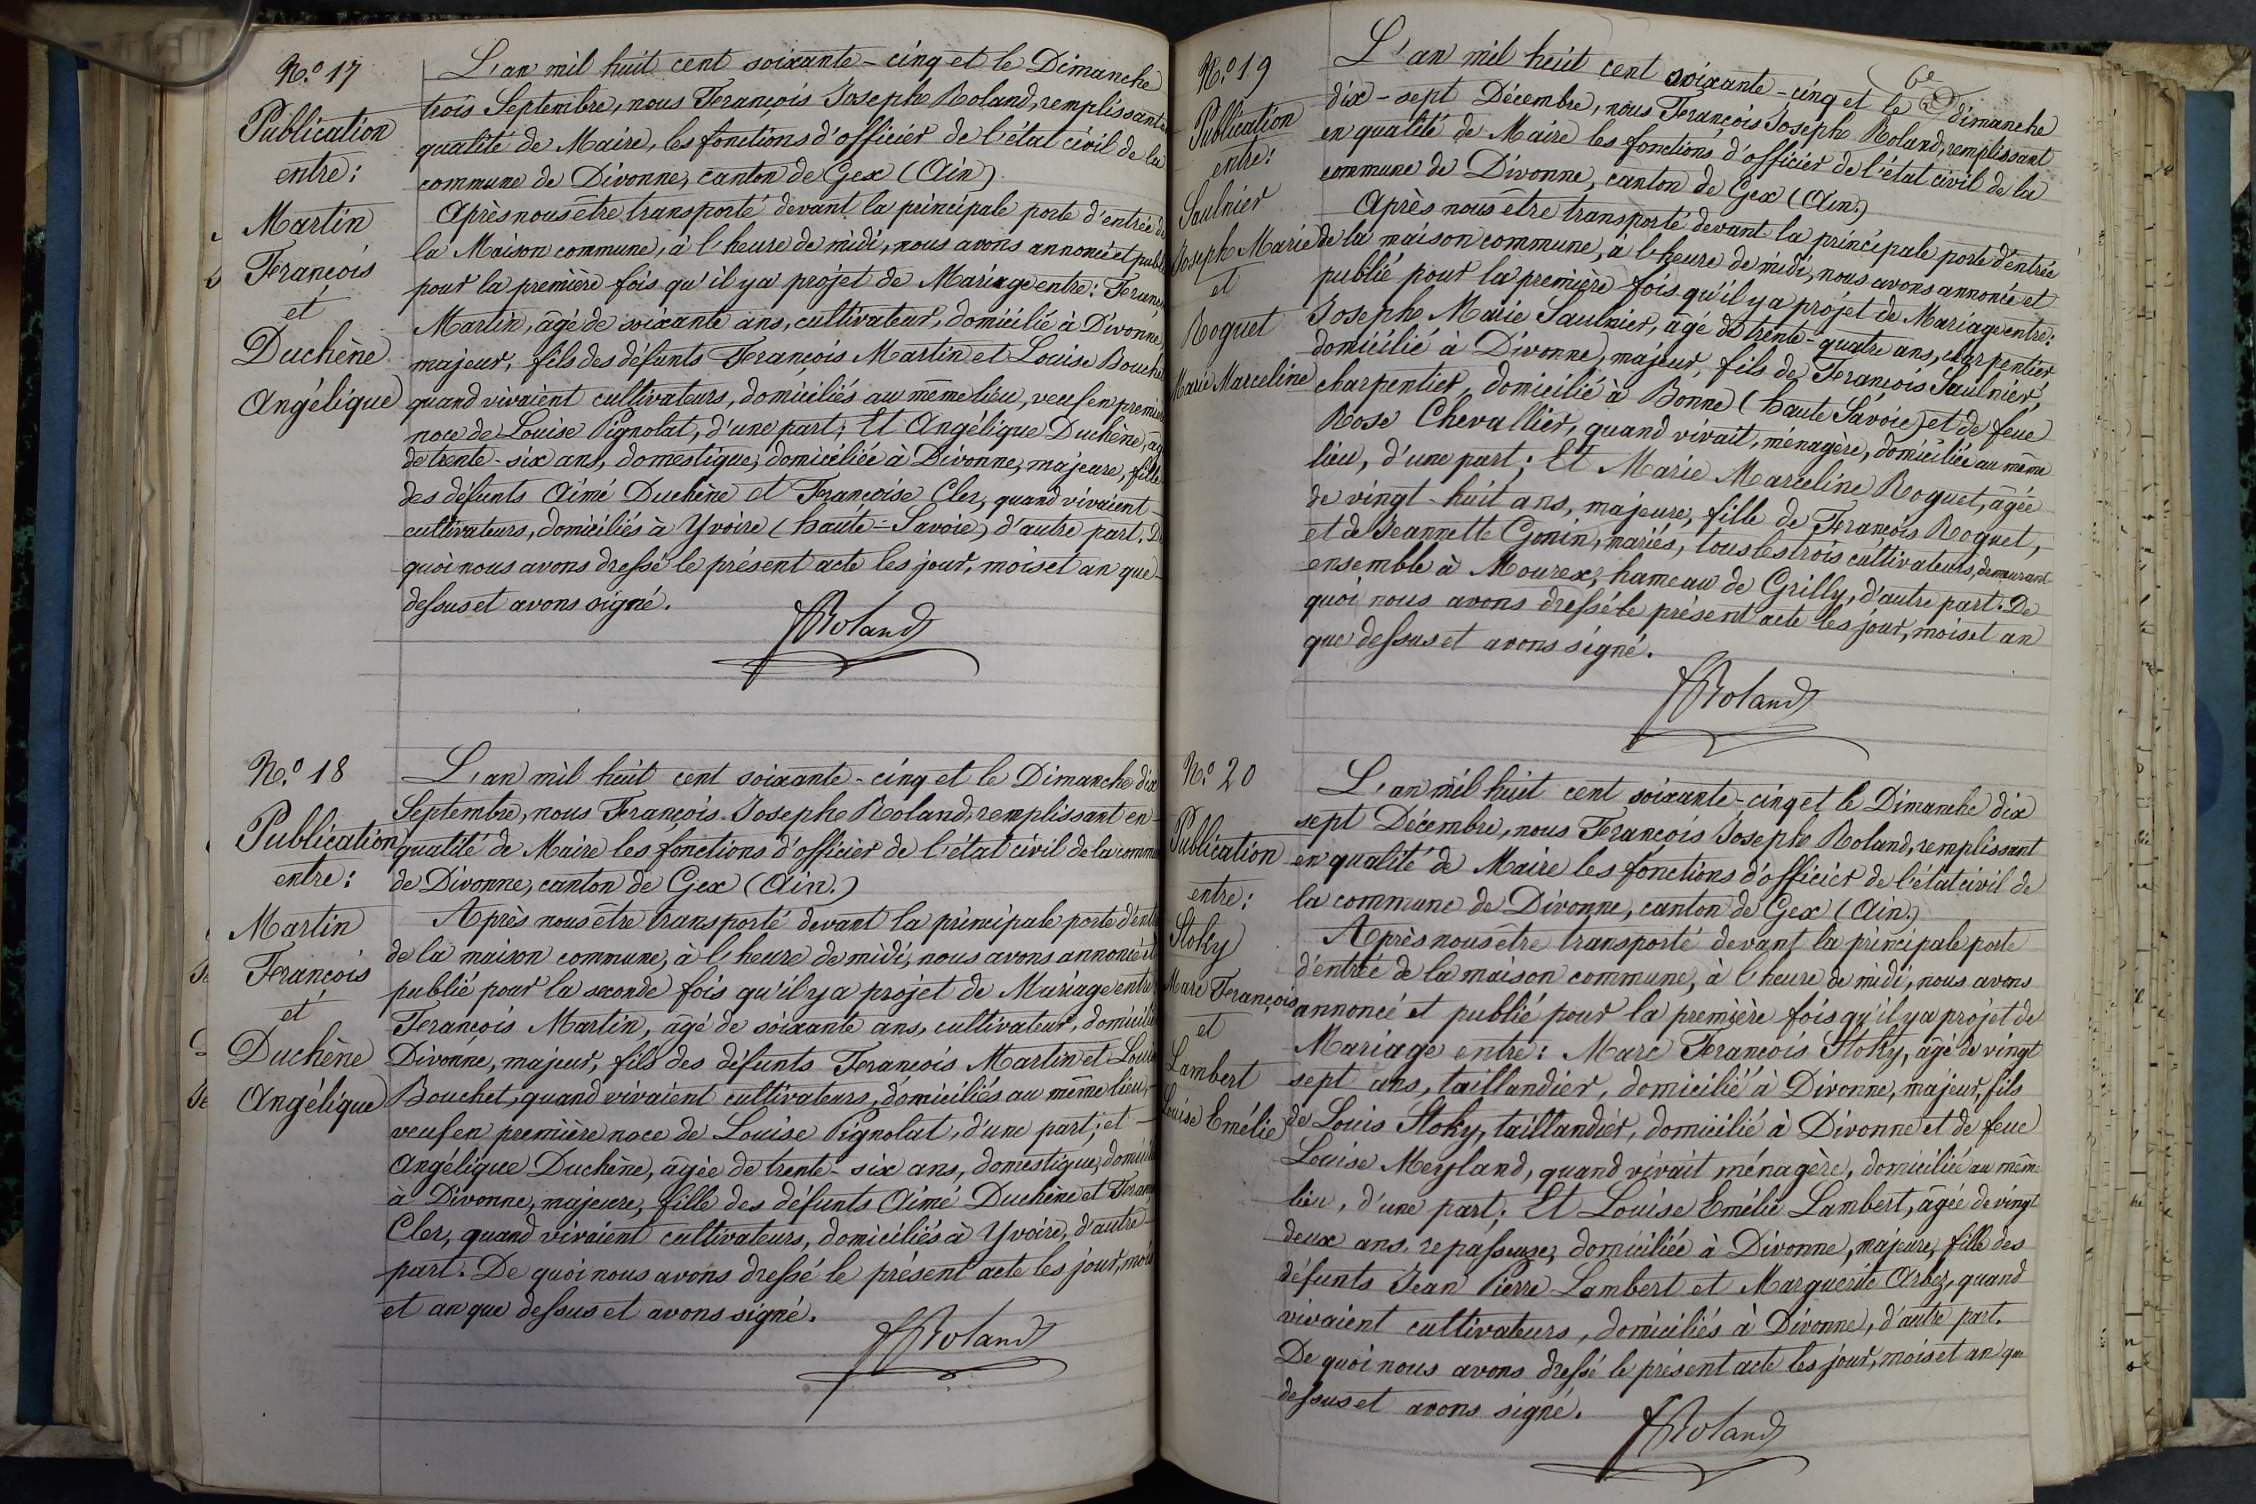 N.o 17
Publication
entre :
Martin
François
et
Duchène
Angélique
L'an mil huit cent soixante-cinq et le Dimanche
trois Septembre, nous François Joseph Roland, remplissant
qualité de Maire, les fonctions d'officier de l'état civil de la
commune de Divonne, canton de Gex (Ain)
Après nous être transporté devant la principale porte d'entrée
la Maison commune, à l'heure de midi, nous avons annoncé et
pour la première fois qu'il y a projet de Mariage entre :
Martin, âgé de soixante ans, cultivateur, domicilié à Divonne,
majeur, fils des défunts François Martin et Louise
quand vivaient cultivateurs, domiciliés au même lieu, veuf en
noce de Louise Pignolat, d'une part ; Et Angélique Duchène,
de trente-six ans, domestique, domiciliée à Divonne, majeure, fille
des défunts Aimé Duchène et Françoise Cler, quand vivaient
cultivateurs, domiciliés à Yvoire (haute-Savoie) d'autre part.
quoi nous avons dressé le présent acte les jour, mois et an que
dessus et avons signé.
FRoland
N.o 18
Publication
entre :
Martin
François
et
Duchène
Angélique
L'an mil huit cent soixante-cinq et le Dimanche dix
Septembre, nous François Joseph Roland, remplissant en
qualité de Maire les fonctions d'officier de l'état civil de la
de Divonne, canton de Gex (Ain.)
Après nous être transporté devant la principale porte
de la maison commune, à l'heure de midi, nous avons annoncé
publié pour la seconde fois qu'il y a projet de Mariage entre
François Martin, âgé de soixante ans, cultivateur,
Divonne, majeur, fils des défunts François Martin et
Bouchet, quand vivaient cultivateurs, domiciliés au même lieu,
veuf en première noce de Louise Pignolat, d'une part ; et
Angélique Duchène, âgée de trente-six ans, domestique,
à Divonne, majeure, fille des défunts Aimé Duchène et
Cler, quand vivaient cultivateurs, domiciliés à Yvoire, d'autre
part. De quoi nous avons dressé le présent acte les jour, mois
et an que dessus et avons signé.
FRoland
6e
N.o 19
Publication
entre :
Saulnier
Joseph Marie
et
Roguet
Marie Marceline
L'an mil huit cent soixante-cinq et le dimanche
dix-sept Décembre, nous François Joseph Roland, remplissant
en qualité de Maire les fonctions d'officier de l'état civil de la
commune de Divonne, canton de Gex (Ain.)
Après nous être transporté devant la principale porte d'entrée
de la maison commune, à l'heure de midi, nous avons annoncé et
publié pour la première fois qu'il y a projet de Mariage entre :
Joseph Marie Saulnier, âgé de trente-quatre ans, charpentier
domicilié à Divonne, majeur, fils de François Saulnier,
charpentier, domicilié à Bonne (haute Savoie) et de feue
Rose Chevallier, quand vivait, ménagère, domiciliée au même
lieu, d'une part ; Et Marie Marceline Roguet, âgée
de vingt-huit ans, majeure, fille de François Roguet,
et de Jeannette Gonin, mariés, tous les trois cultivateurs, demeurant
ensemble à Mourex, hameau de Grilly, d'autre part. De
quoi nous avons dressé le présent acte les jour, mois et an
que dessus et avons signé.
FRoland
N.o 20
Publication
entre :
Stoky
Marc François
et
Lambert
Louise Emélie
L'an mil huit cent soixante-cinq et le Dimanche dix
sept Décembre, nous François Joseph Roland, remplissant
en qualité de Maire les fonctions d'officier de l'état civil de
la commune de Divonne, canton de Gex (Ain.)
Après nous être transporté devant la principale porte
d'entrée de la maison commune, à l'heure de midi, nous avons
annoncé et publié pour la première fois qu'il y a projet de
Mariage entre : Marc François Stoky, âgé de vingt
sept ans, taillandier, domicilié à Divonne, majeur, fils
de Louis Stoky, taillandier, domicilié à Divonne et de feue
Louise Meyland, quand vivait ménagère, domiciliée au même
lieu, d'une part ; Et Louise Emélie Lambert, âgée de vingt
deux ans, repasseuse, domiciliée à Divonne, majeure, fille des
défunts Jean Pierre Lambert et Marguerite Arbez, quand
vivaient cultivateurs, domiciliés à Divonne, d'autre part.
De quoi nous avons dressé le présent acte les jour, mois et an que
dessus et avons signé.
FRoland